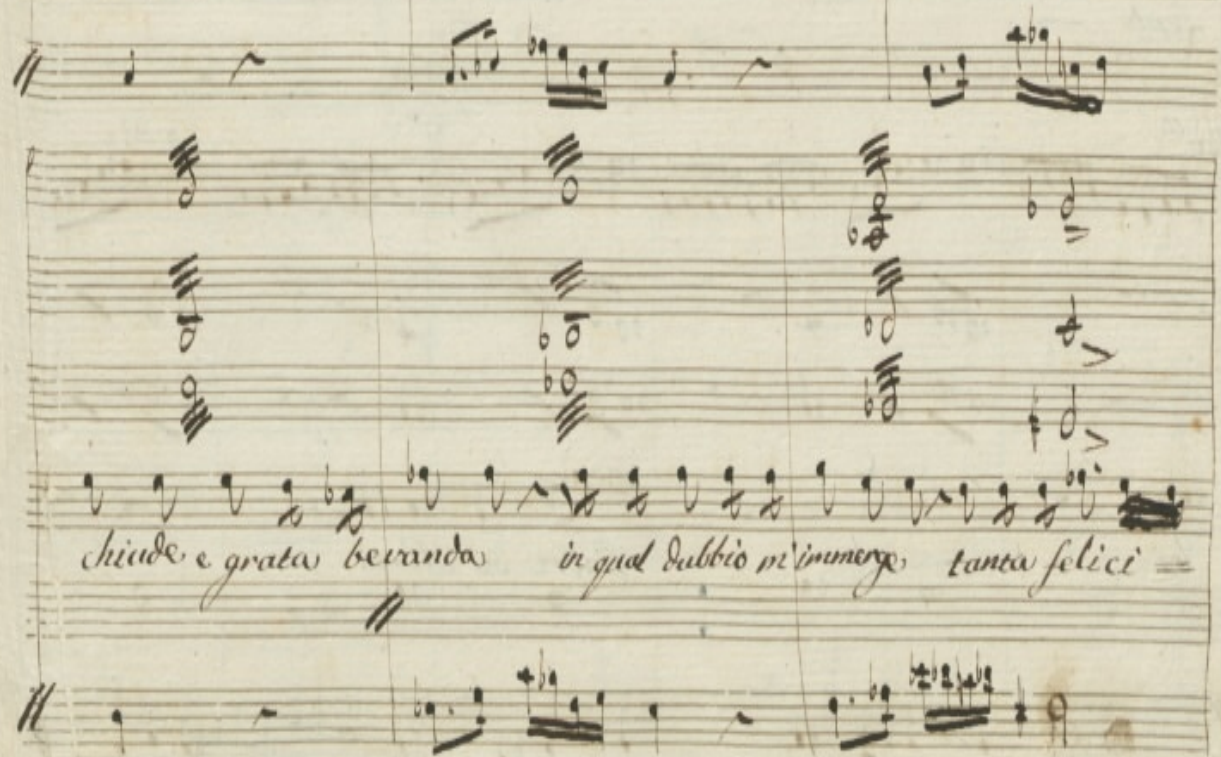 chiude e grata bevanda in qual dubbio m'immerge tanta felici =